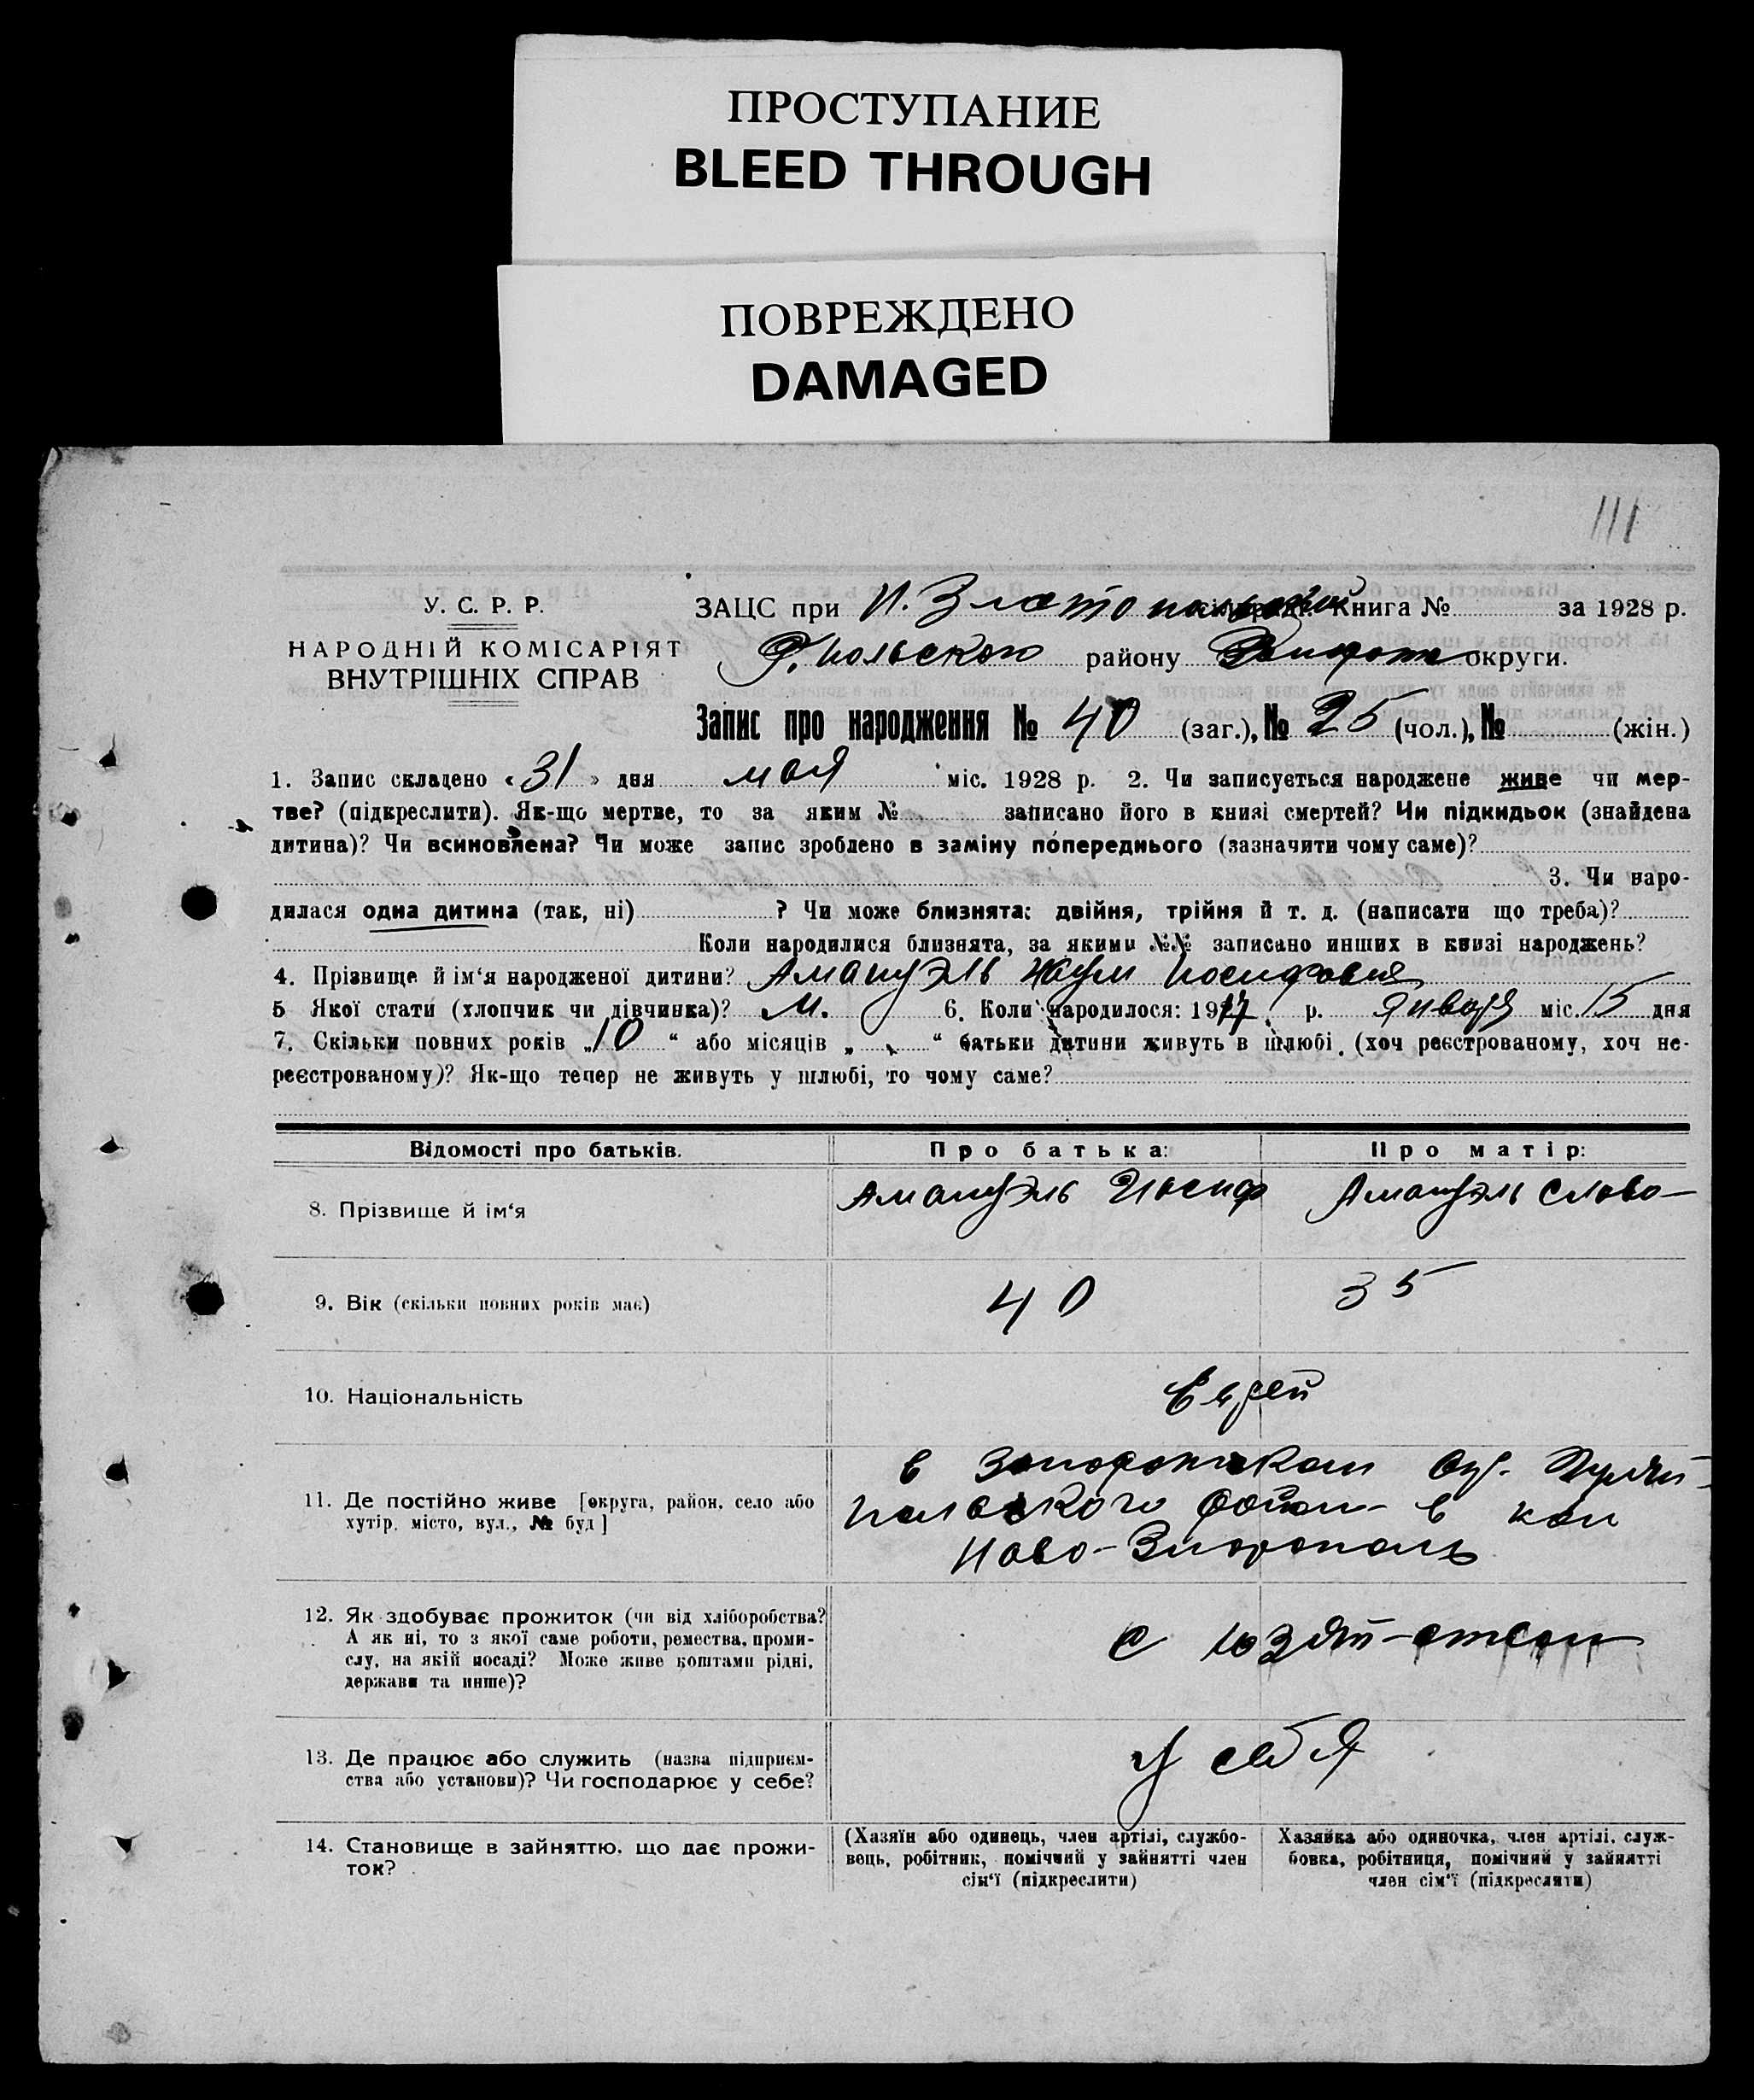 ПРОСТУПАНИЕ
BLEED THROUGH
ПОВРЕЖДЕНО
DAMAGED
111
У. С. Р. Р.
НАРОДНІЙ КОМІСАРІЯТ
ВНУТРІШНІХ СПРАВ
ЗАЦС при Н. Златопольской Книга № за 1928 р.
польского району Запорож округи.
Запис про народження № 40 (заг.), № 25 (чол.), № (жін.)
1. Запис складено «31» дня мая міс. 1928 р. 2. Чи записується народжене живе чи мер-
тве? (підкреслити). Як-що мертве, то за яким № записано його в книзі смертей? Чи підкидьок (знайдена
дитина)? Чи всиновлена? Чи може запис зроблено в заміну попереднього (зазначити чому саме)?
3. Чи наро-
дилася одна дитина (так, ні) ? Чи може близнята: двійня, трійня й т. д. (написати що треба)?
Коли народилися близнята, за якими №№ записано инших в книзі народжень?
4. Прізвище й ім‘я народженої дитини? Амануэль Наум Иосифович
5 Якої стати (хлопчик чи дівчинка)? М. 6. Коли народилося: 19 р. января міс. 15 дня
7. Скільки повних років „10“ або місяців „ “ батьки дитини живуть в шлюбі (хоч реєстрованому, хоч не-
реєстрованому)? Як-що тепер не живуть у шлюбі, то чому саме?
Відомості про батьків. Про батька: Про матір:
8. Прізвище й ім‘я Амануэль Иосиф Амануэль Слова
9. Вік (скільки повних років має) 40 35
10. Національність Еврей
11. Де постійно живе [округа, район, село або
хутір, місто, вул., № буд]
в Запорожском Окр. Гуляй-
польского район в кол
Ново-Златополь
12. Як здобуває прожиток (чи від хліборобства?
А як ні, то з якої саме роботи, ремества, проми-
слу, на якій посаді? Може живе коштами рідні,
держави та инше)?
с
13. Де працює або служить (назва підприєм-
ства або установи)? Чи господарює у себе?
у себя
14. Становище в зайняттю, що дає прожи-
ток?
(Хазяїн або одинець, член артілі, службо-
вець, робітник, помічний у зайнятті член
сім‘ї (підкреслити)
Хазяйка або одиночка, член артілі, служ-
бовка, робітниця, помічний у зайнятті
член сім‘ї (підкреслити)